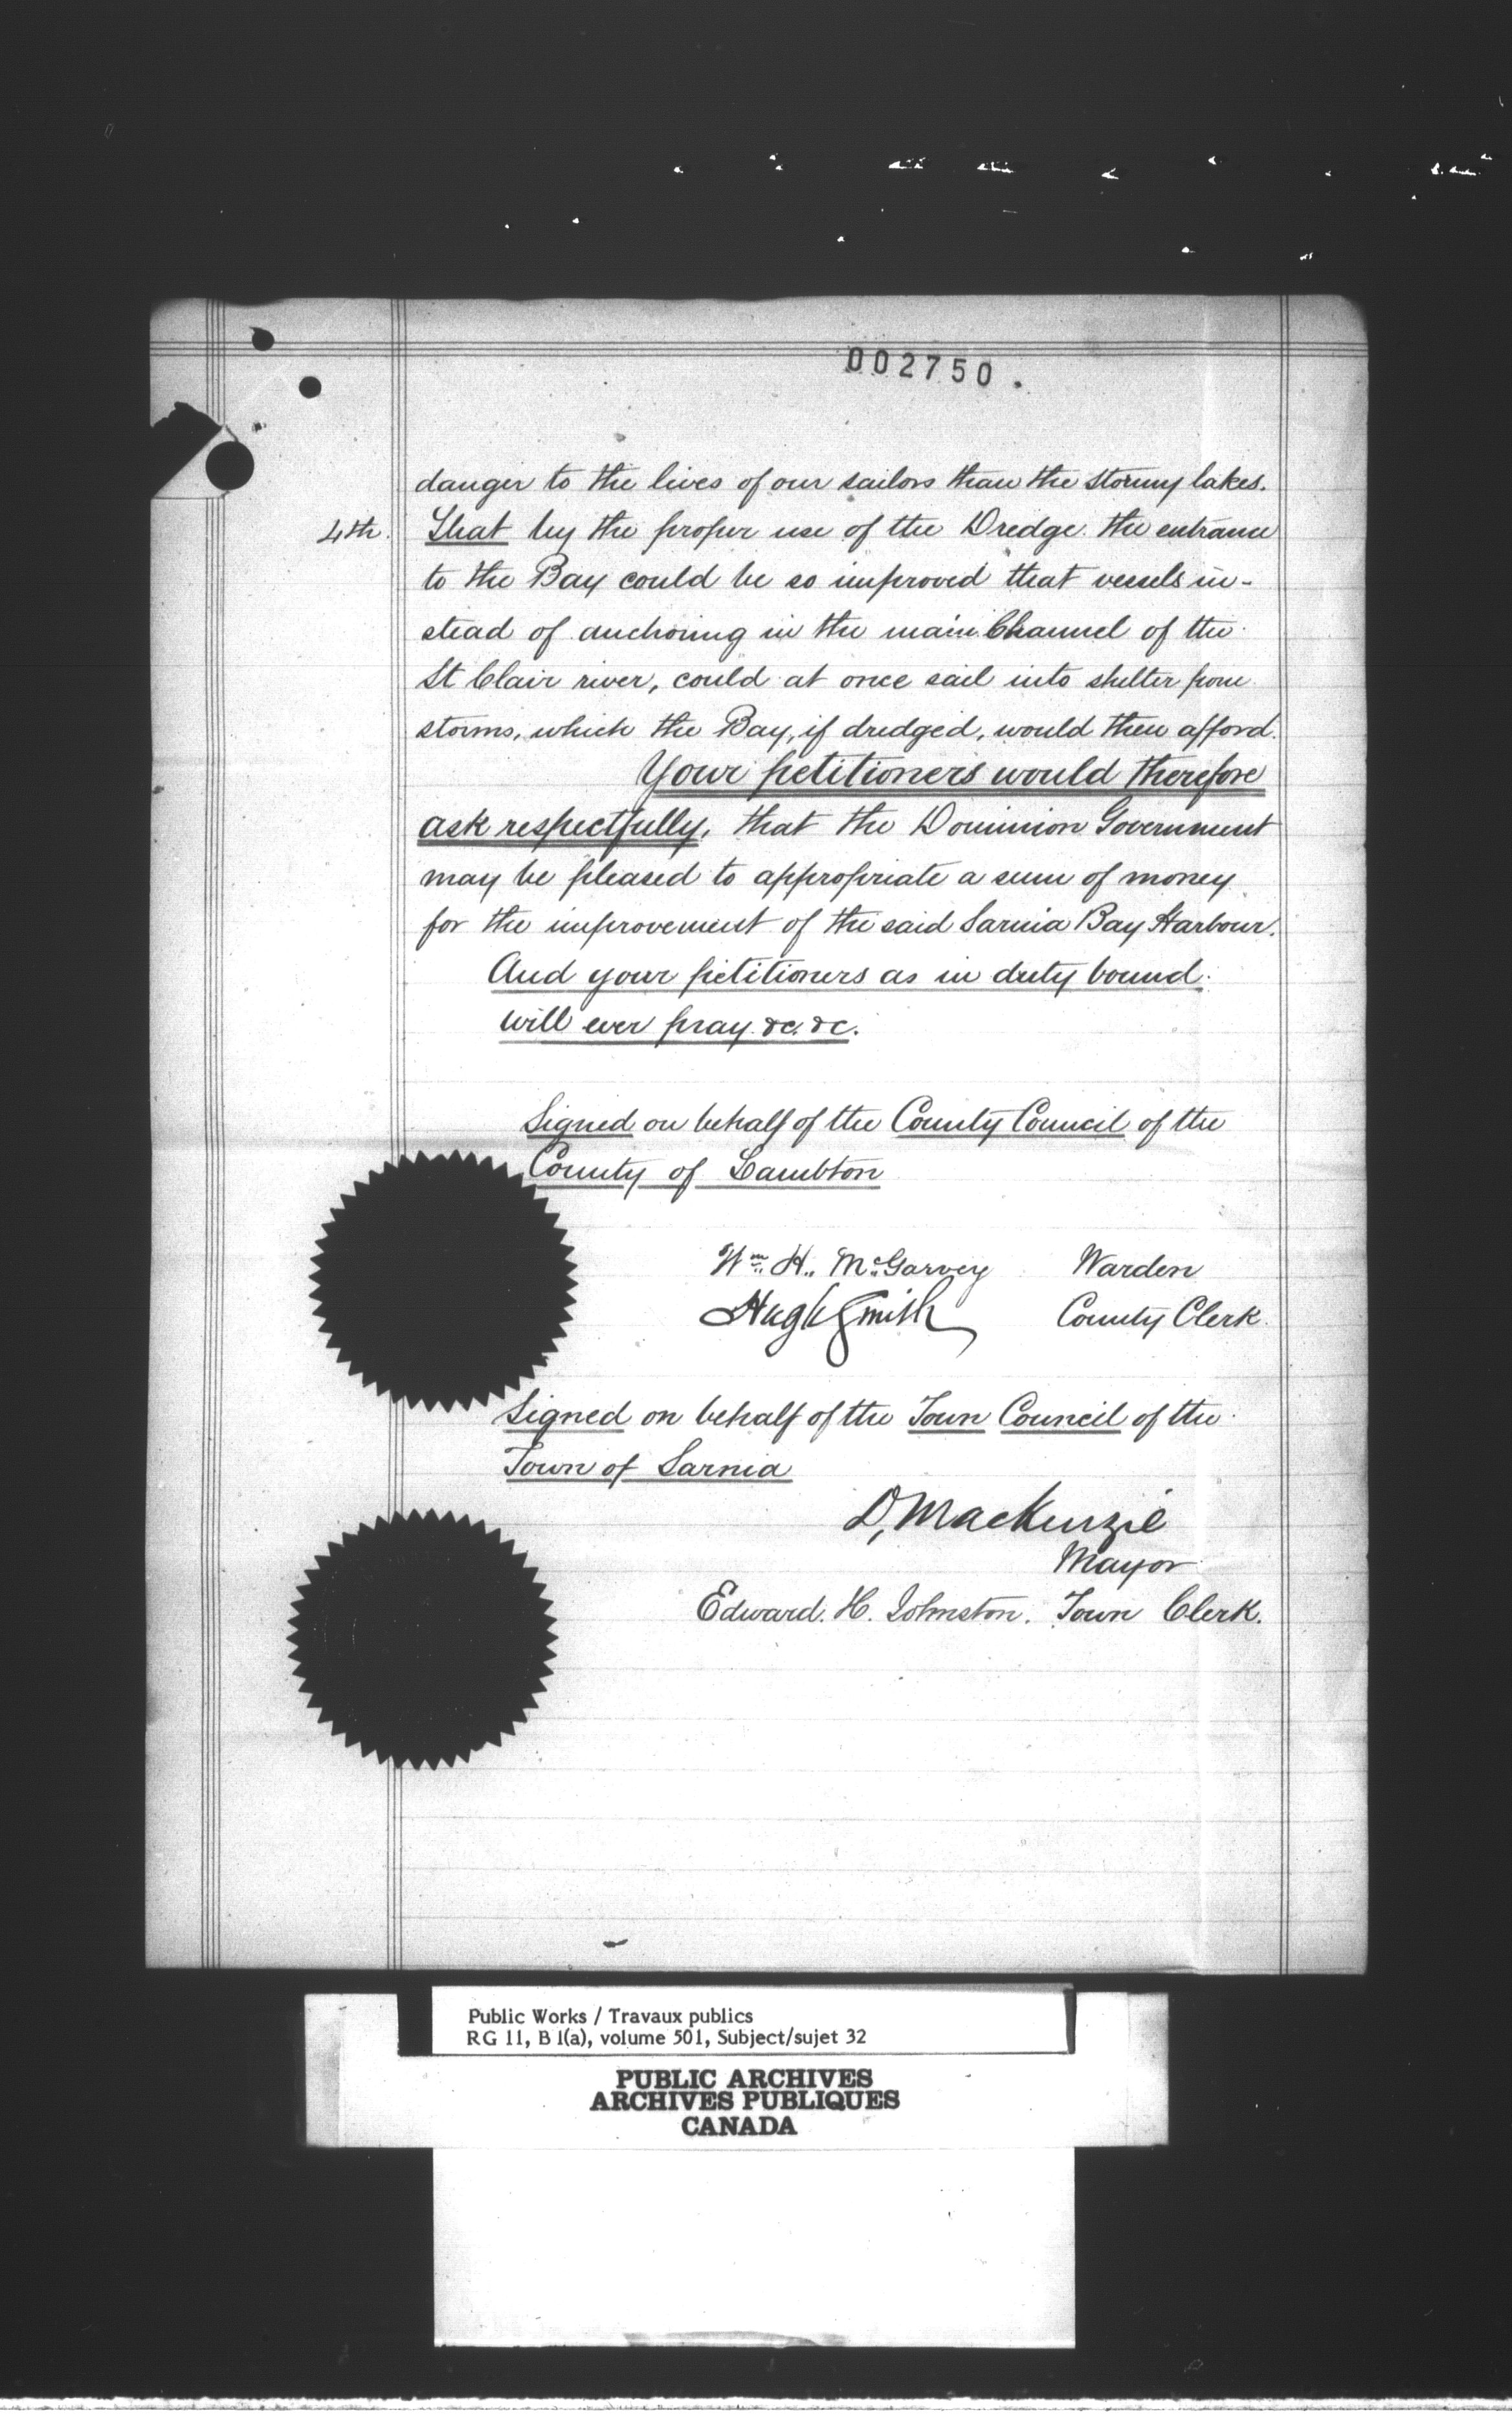 002750.
danger to the lives of our sailors than the stormy lakes.
4th. That by the proper use of the Dredge the entrance
to the Bay could be so improved that vessels in-
stead of anchoring in the main Channel of the
St Clair river, could at once sail into shelter from
storms, which the Bay, if dredged, would then afford.
Your petitioners would therefore
ask respectfully, that the Dominion Government
may be pleased to appropriate a sum of money
for the improvement of the said Sarnia Bay Harbour.
And your petitioners as in duty bound
will ever pray &c. &c.
Signed on behalf of the County Council of the
County of Lambton
Wm. H. McGarvey Warden
Hugh Smith County Clerk
Signed on behalf of the Town Council of the
Town of Sarnia
D, MacKenzie
Mayor
Edward. H. Johnston. Town Clerk.
Public Works / Travaux publics
RG 11, B 1(a), volume 501, Subject/sujet 32
PUBLIC ARCHIVES
ARCHIVES PUBLIQUES
CANADA